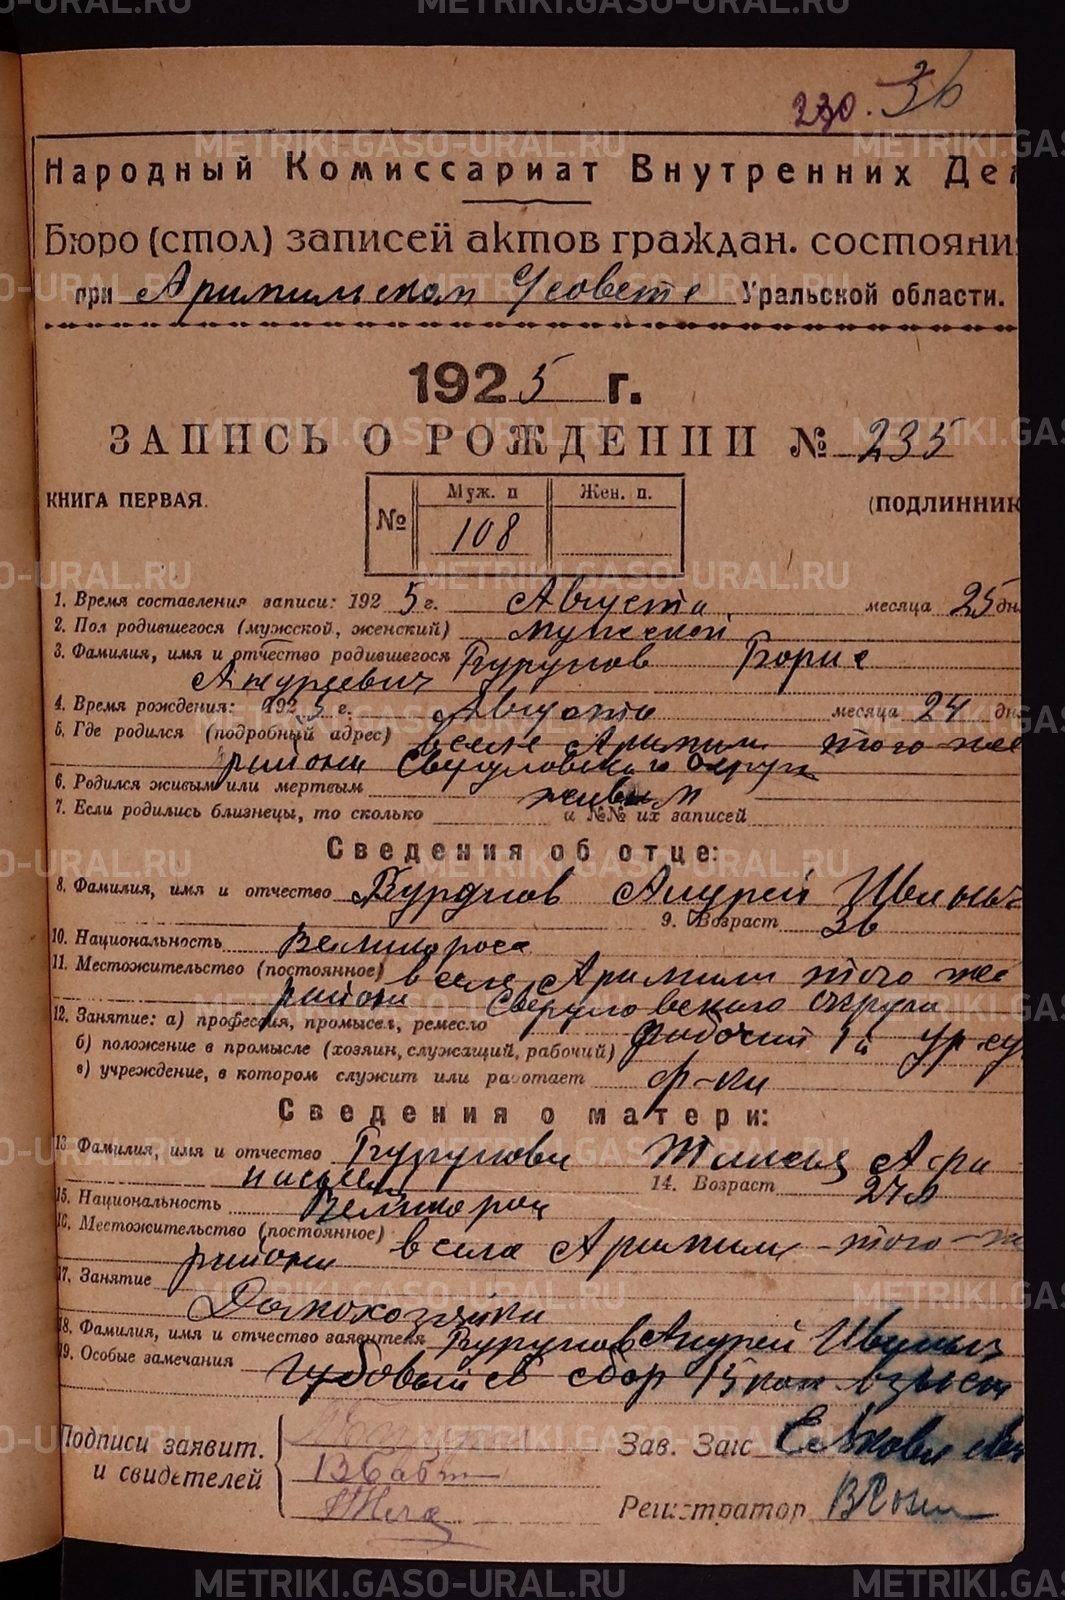 230. 36
Народный Комиссариат Внутренних Дел
Бюро (стол) записей актов граждан. состояния
при Арамильском Усовете Уральской области.
1925 г.
ЗАПИСЬ О РОЖДЕНИИ № 235
КНИГА ПЕРВАЯ. (ПОДЛИННИК
№ Муж. п Жен. п.
108
1. Время составления записи: 1925 г. Августа месяца 25 дня
2. Пол родившегося (мужской, женский) мужской
3. Фамилия, имя и отчество родившегося Бурдуков Борис
Андреевич
4. Время рождения: 1925 г. Августа месяца 24 дня
5. Где родился (подробный адрес) в селе Арамили того же
района Свердловского округа
6. Родился живым или мертвым живым
7. Если родились близнецы, то сколько и №№ их записей
Сведения об отце:
8. Фамилия, имя и отчество Андрей Иваныч
9. Возраст 36
10. Национальность Великоросс
11. Местожительство (постоянное) в селе Арамили того же
района Свердловского округа
12. Занятие: а) профессия, промысел, ремесло
б) положение в промысле (хозяин, служащий, рабочий) рабочий
в) учреждение, в котором служит или работает ф-ки
Сведения о матери:
13. Фамилия, имя и отчество
14. Возраст
15. Национальность
16. Местожительство (постоянное) в селе Арамили того же
района
17. Занятие
Домохозяйка
18. Фамилия, имя и отчество заявителя Андрей Иваныч
19. Особые замечания сбор 15 коп взыскан
Подписи заявит.
и свидетелей
Зав. Загс
Регистратор
METRIKI.GASO-URAL.RU